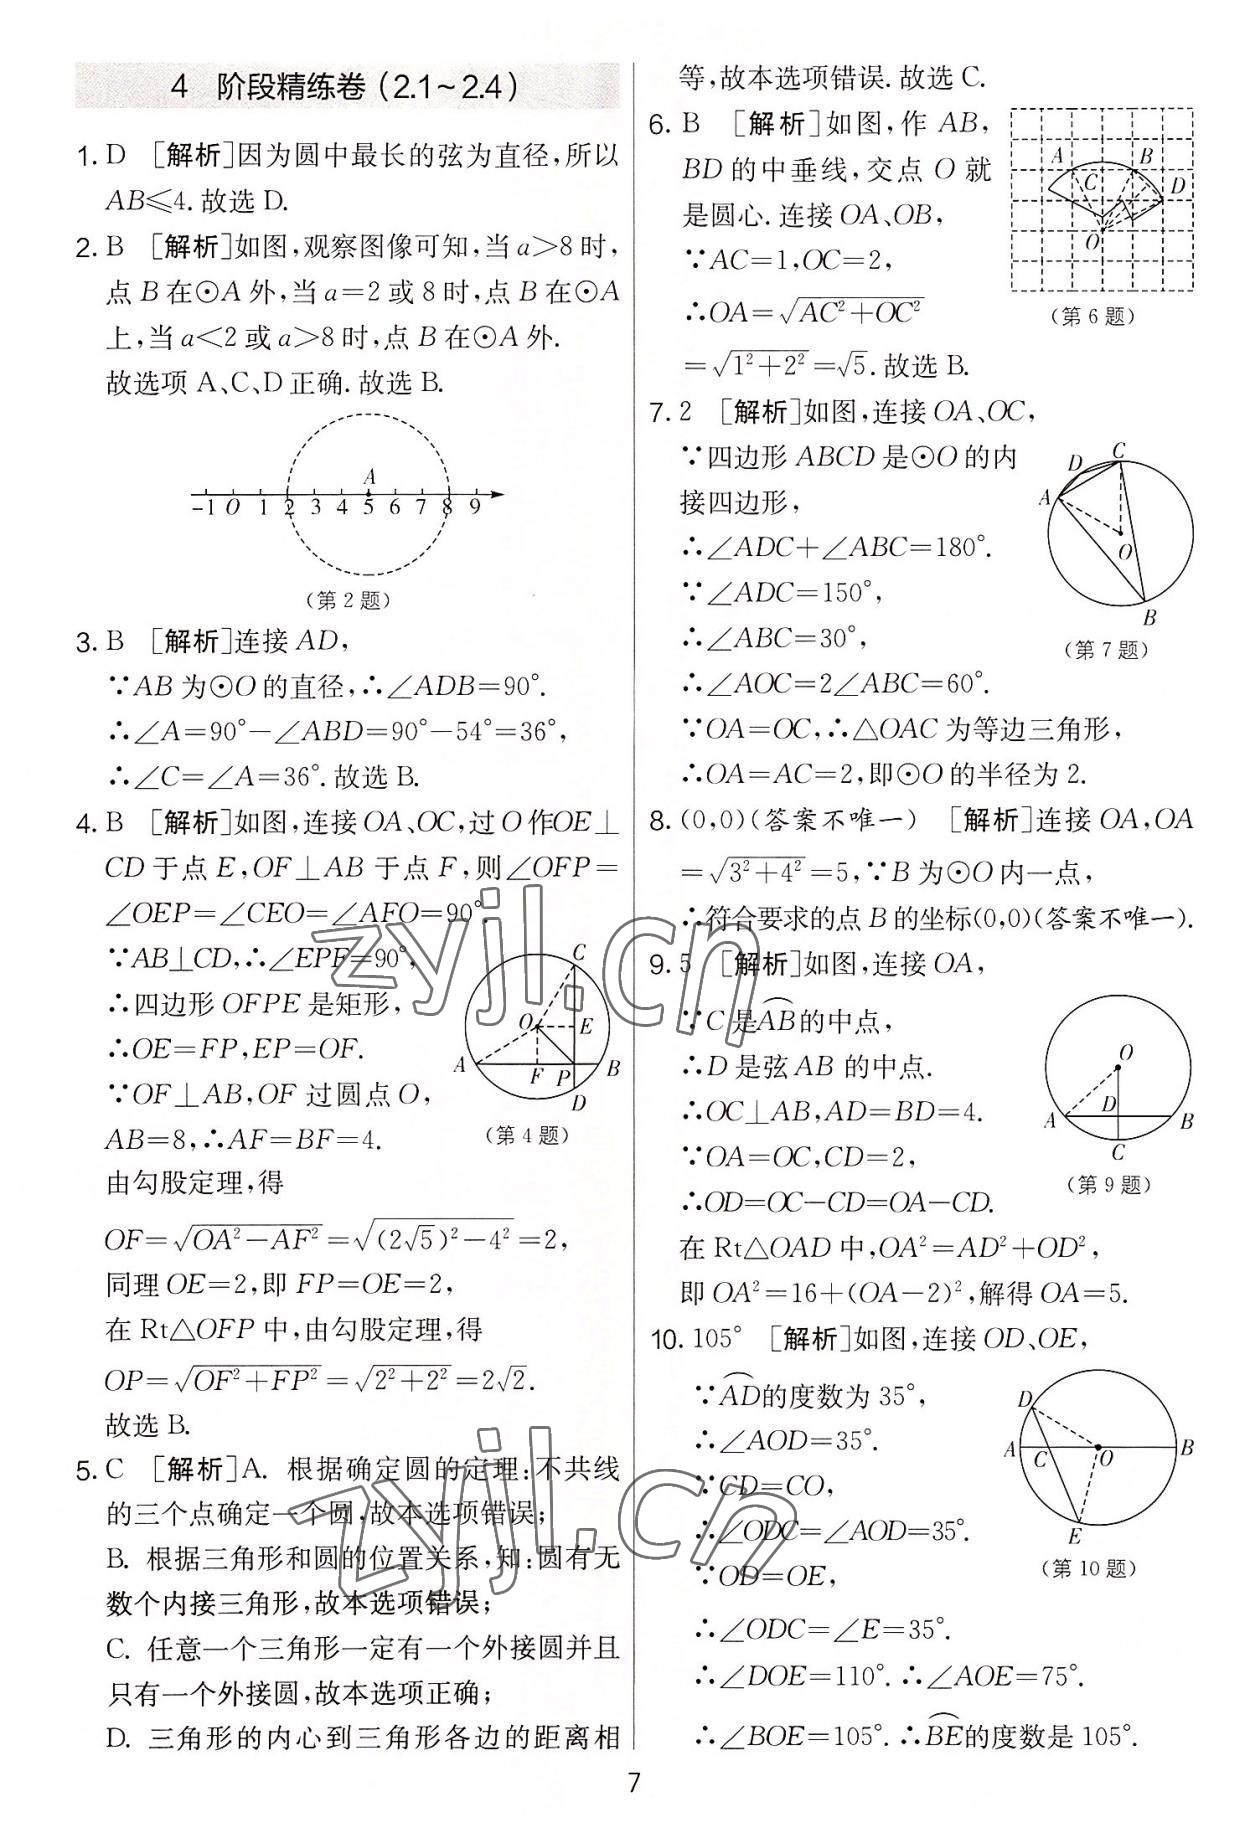 4 阶段精练卷(2.1~2.4)
1. D [解析]因为圆中最长的弦为直径,所以
AB≤4.故选D.
2. B [解析]如图,观察图像可知,当a>8时,
点B在⊙A外,当a=2或8时,点B在⊙A
上,当a<2或a>8时,点B在⊙A外.
故选项A、C、D正确.故选B.
A
-1 0 1 2 3 4 5 6 7 8 9
(第2题)
3. B [解析]连接AD,
∵AB为⊙O的直径,∴∠ADB=90°.
∴∠A=90°-∠ABD=90°-54°=36°,
∴∠C=∠A=36°.故选B.
4. B [解析]如图,连接OA、OC,过O作OE⊥
CD于点E,OF⊥AB于点F,则∠OFP=
∠OEP=∠CEO=∠AFO=90°.
∵AB⊥CD,∴∠EPF=90°,
∴四边形OFPE是矩形,
∴OE=FP,EP=OF.
∵OF⊥AB,OF过圆点O,
AB=8,∴AF=BF=4.
由勾股定理,得
OF=√(OA²-AF²)=√((2√5)²-4²)=2,
同理OE=2,即FP=OE=2,
在Rt△OFP中,由勾股定理,得
OP=√(OF²+FP²)=√(2²+2²)=2√2.
故选B.
C
O E
A F P B
D
(第4题)
5. C [解析]A. 根据确定圆的定理:不共线
的三个点确定一个圆,故本选项错误;
B. 根据三角形和圆的位置关系,知:圆有无
数个内接三角形,故本选项错误;
C. 任意一个三角形一定有一个外接圆并且
只有一个外接圆,故本选项正确;
D. 三角形的内心到三角形各边的距离相
等,故本选项错误.故选C.
6. B [解析]如图,作AB,
BD的中垂线,交点O就
是圆心.连接OA、OB,
∵AC=1,OC=2,
∴OA=√(AC²+OC²)
=√(1²+2²)=√5.故选B.
A B
C D
O
(第6题)
7. 2 [解析]如图,连接OA、OC,
∵四边形ABCD是⊙O的内
接四边形,
∴∠ADC+∠ABC=180°.
∵∠ADC=150°,
∴∠ABC=30°,
∴∠AOC=2∠ABC=60°.
∵OA=OC,∴△OAC为等边三角形,
∴OA=AC=2,即⊙O的半径为2.
C
D
A
O
B
(第7题)
8. (0,0)(答案不唯一) [解析]连接OA,OA
=√(3²+4²)=5,∵B为⊙O内一点,
∴符合要求的点B的坐标(0,0)(答案不唯一).
9. 5 [解析]如图,连接OA,
∵C是A͡B的中点,
∴D是弦AB的中点.
∴OC⊥AB,AD=BD=4.
∵OA=OC,CD=2,
∴OD=OC-CD=OA-CD.
在Rt△OAD中,OA²=AD²+OD²,
即OA²=16+(OA-2)²,解得OA=5.
O
A D B
C
(第9题)
10. 105° [解析]如图,连接OD、OE,
∵A͡D的度数为35°,
∴∠AOD=35°.
∵CD=CO,
∴∠ODC=∠AOD=35°.
∵OD=OE,
∴∠ODC=∠E=35°.
∴∠DOE=110°.∴∠AOE=75°.
∴∠BOE=105°.∴B͡E的度数是105°.
D
A C O B
E
(第10题)
zyjl.cn
zyjl.cn
7